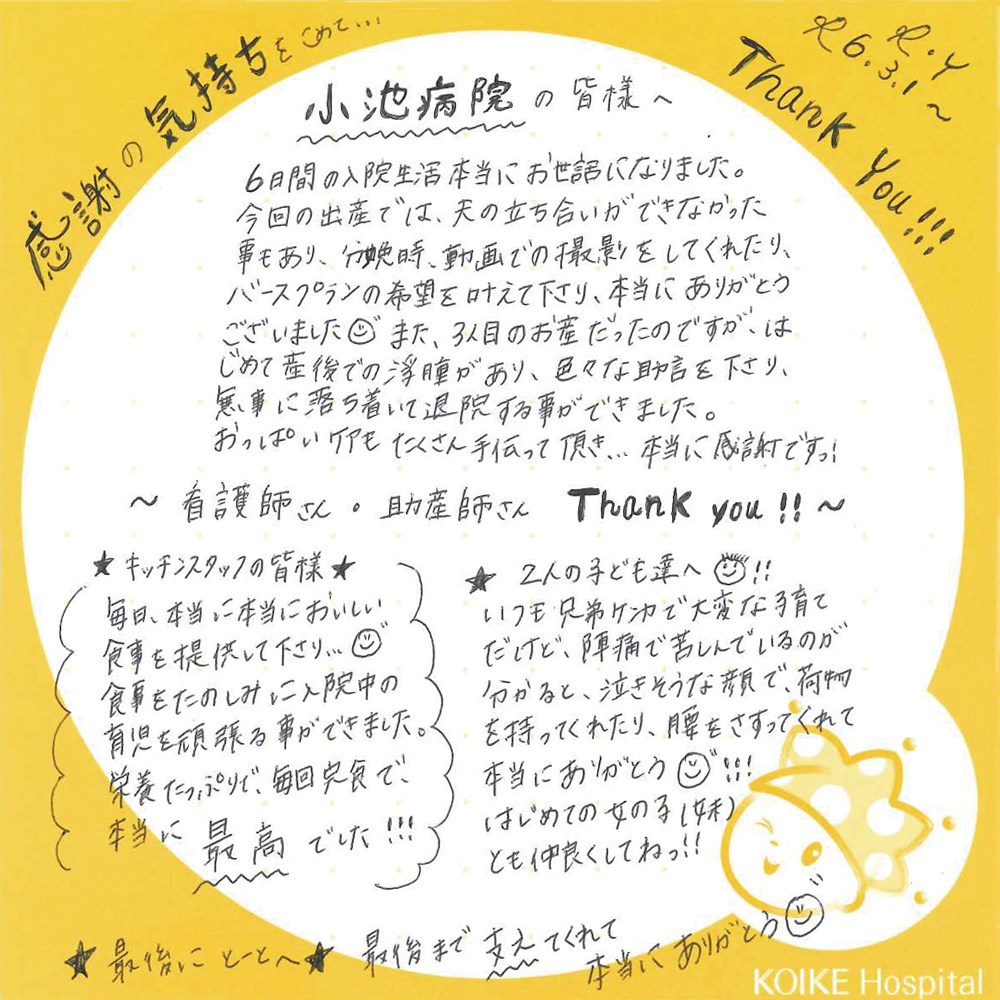 感謝の気持ちをこめて…
R.Y
R6.3.1~
Thank You!!!
小池病院の皆様へ
6日間の入院生活本当にお世話になりました。
今回の出産では、夫の立ち合いができなかった
事もあり、分娩時、動画での撮影をしてくれたり、
バースプランの希望を叶えて下さり、本当にありがとう
ございました また、3人目のお産だったのですが、は
じめて産後での浮腫があり、色々な助言を下さり、
無事に落ち着いて退院する事ができました。
おっぱいケアもたくさん手伝って頂き…本当に感謝ですっ!
~看護師さん・助産師さん Thank you!!~
★キッチンスタッフの皆様★
毎日、本当に本当においしい
食事を提供して下さり…
食事をたのしみに入院中の
育児を頑張る事ができました。
栄養たっぷりで、毎回完食で、
本当に 最高でした!!!
★ 2人の子ども達へ !!
いつも兄弟ケンカで大変な子育て
だけど、陣痛で苦しんでいるのが
分かると、泣きそうな顔で、荷物
を持ってくれたり、腰をさすってくれて
本当にありがとう !!!
はじめての女の子(妹)
とも仲良くしてねっ!!
★最後にとーとへ★ 最後まで支えてくれて
本当にありがとう
KOIKE Hospital